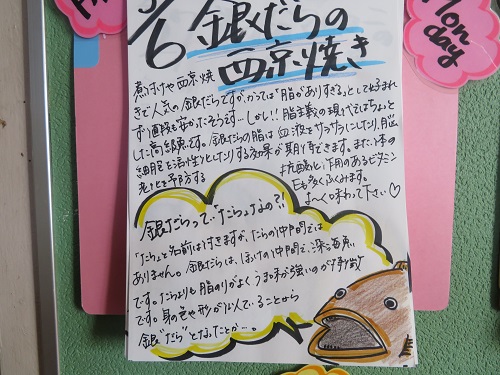 5/6 銀だらの
西京焼き
煮付けや西京焼
きで人気の銀だらですが、かつては「脂がありすぎる」として好まれ
ず値段も安かったそうです…しかし!!脂主義の現代ではちょっと
した高級魚です。銀だらの脂は血液をサラサラにしたり、脳
細胞を活性化したりする効果が期待できます。また、体の
老化を予防する 抗酸化作用のあるビタミン
Eも多くふくみます。
よ〜く味わって下さい♡
銀だらって「たら」なの?!
「たら」と名前は付きますが、たらの仲間では
ありません。銀だらは、ほっけの仲間で、深海魚
です。たらよりも脂のりがよくうま味が強いのが特徴
です。身の色や形が似ていることから
銀"だら"となったとか…。
Mon
day